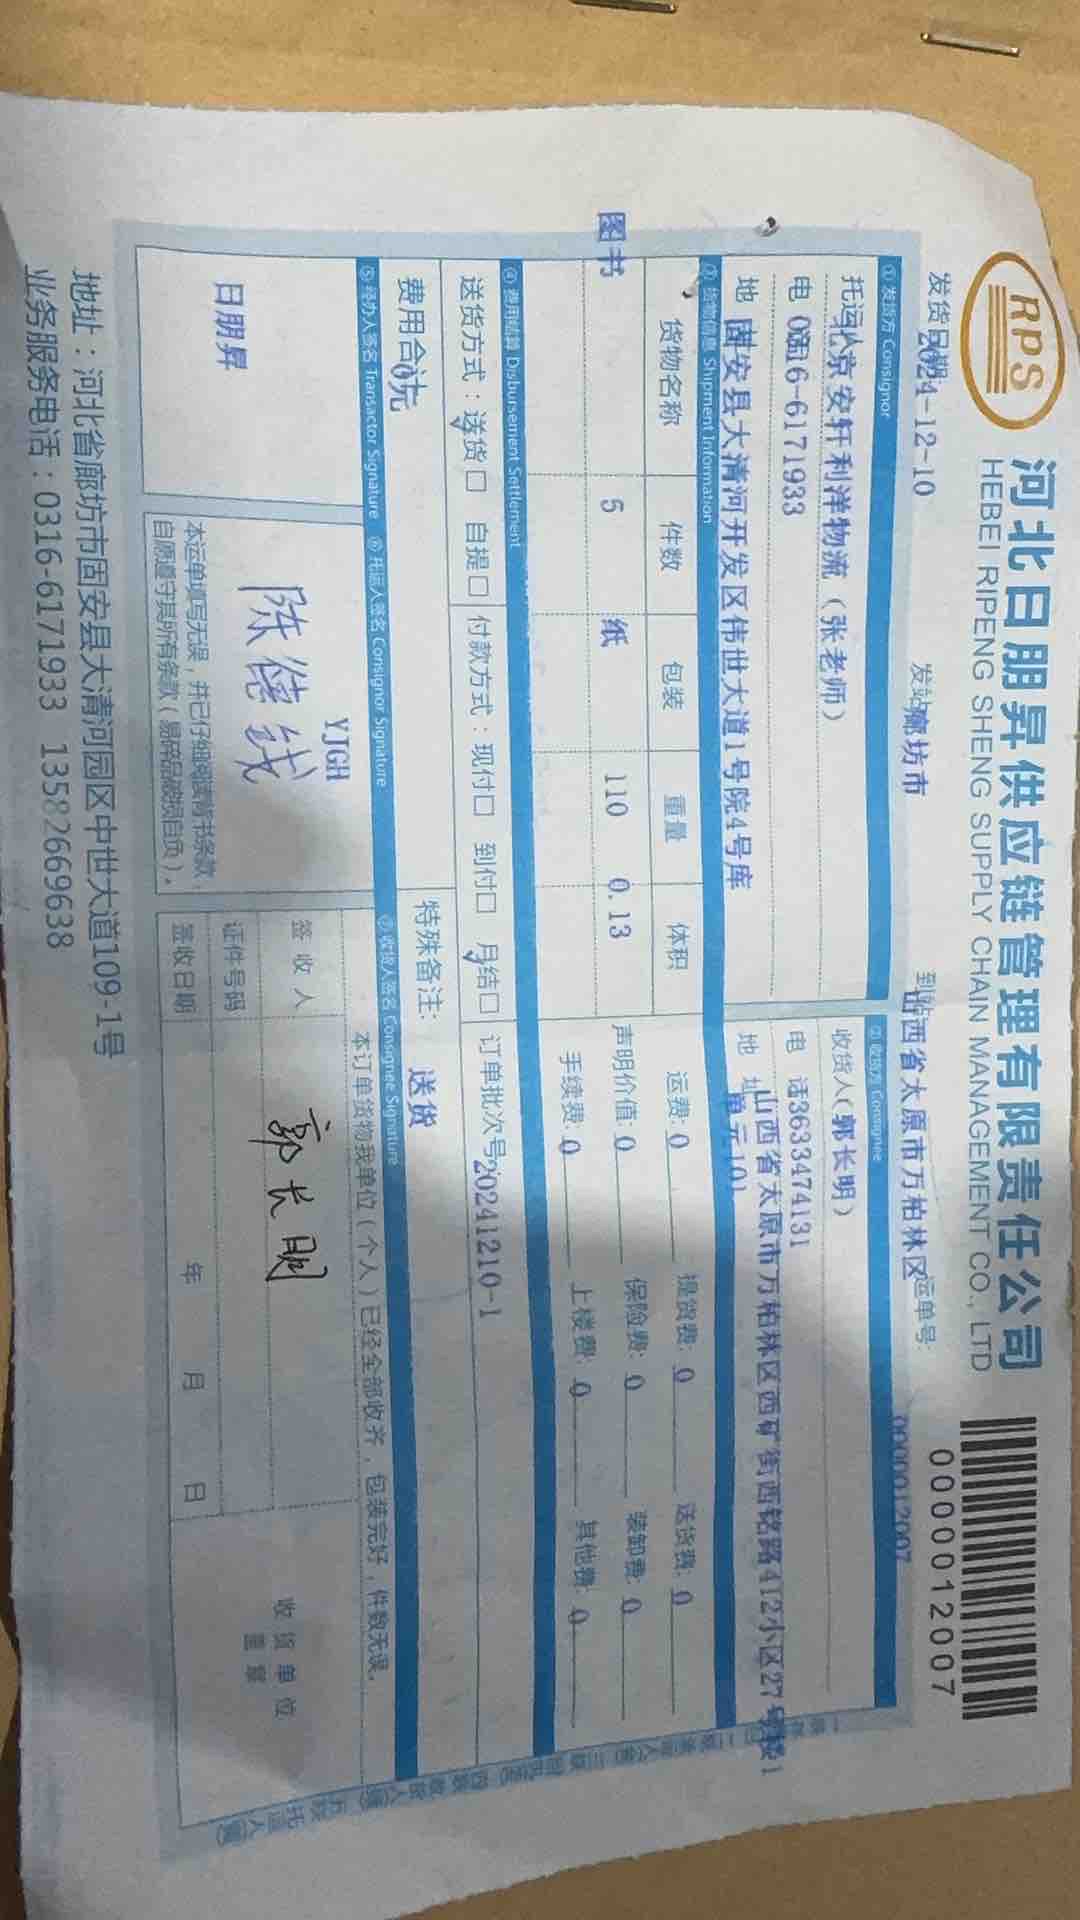 RPS
河北日朋昇供应链管理有限责任公司
HEBEI RIPENG SHENG SUPPLY CHAIN MANAGEMENT CO., LTD
000012007
000012007
发货日期 2024-12-10 发站 廊坊市 到站 山西省太原市万柏林区 运单号:
① 发货方 Consignor
② 收货方 Consignee
托运 北京安轩利洋物流（张老师）
收货人(郭长明)
电 话 0316-6171933
电 话 3633474131
地 固安县大清河开发区伟世大道1号院4号库
地 址 山西省太原市万柏林区西矿街西铭路412小区27号楼1
单元101
③ 货物信息 Shipment Information
货物名称 件数 包装 重量 体积
图书 5 纸 110 0.13
运费: 0 提货费: 0 送货费: 0
声明价值: 0 保险费: 0 装卸费: 0
手续费: 0 上楼费: 0 其他费: 0
④ 费用结算 Disbursement Settlement
送货方式：送货☑ 自提□ 付款方式：现付□ 到付□ 月结☑ 订单批次号 20241210-1
费用合 0元
特殊备注: 送货
⑤ 经办人签名 Transactor Signature
⑥ 托运人签名 Consignor Signature
⑦ 收货人签名 Consignee Signature
日朋昇
YJGH
本运单填写无误，并已仔细阅读背书条款，
自愿遵守其所有条款（易碎品破损自负）。
本订单货物我单位(个人)已经全部收齐，包装完好，件数无误。
签收人 郭长明
证件号码
签收日期 年 月 日
收货单位
盖章
地址：河北省廊坊市固安县大清河园区中世大道109-1号
业务服务电话：0316-6171933 13582669638